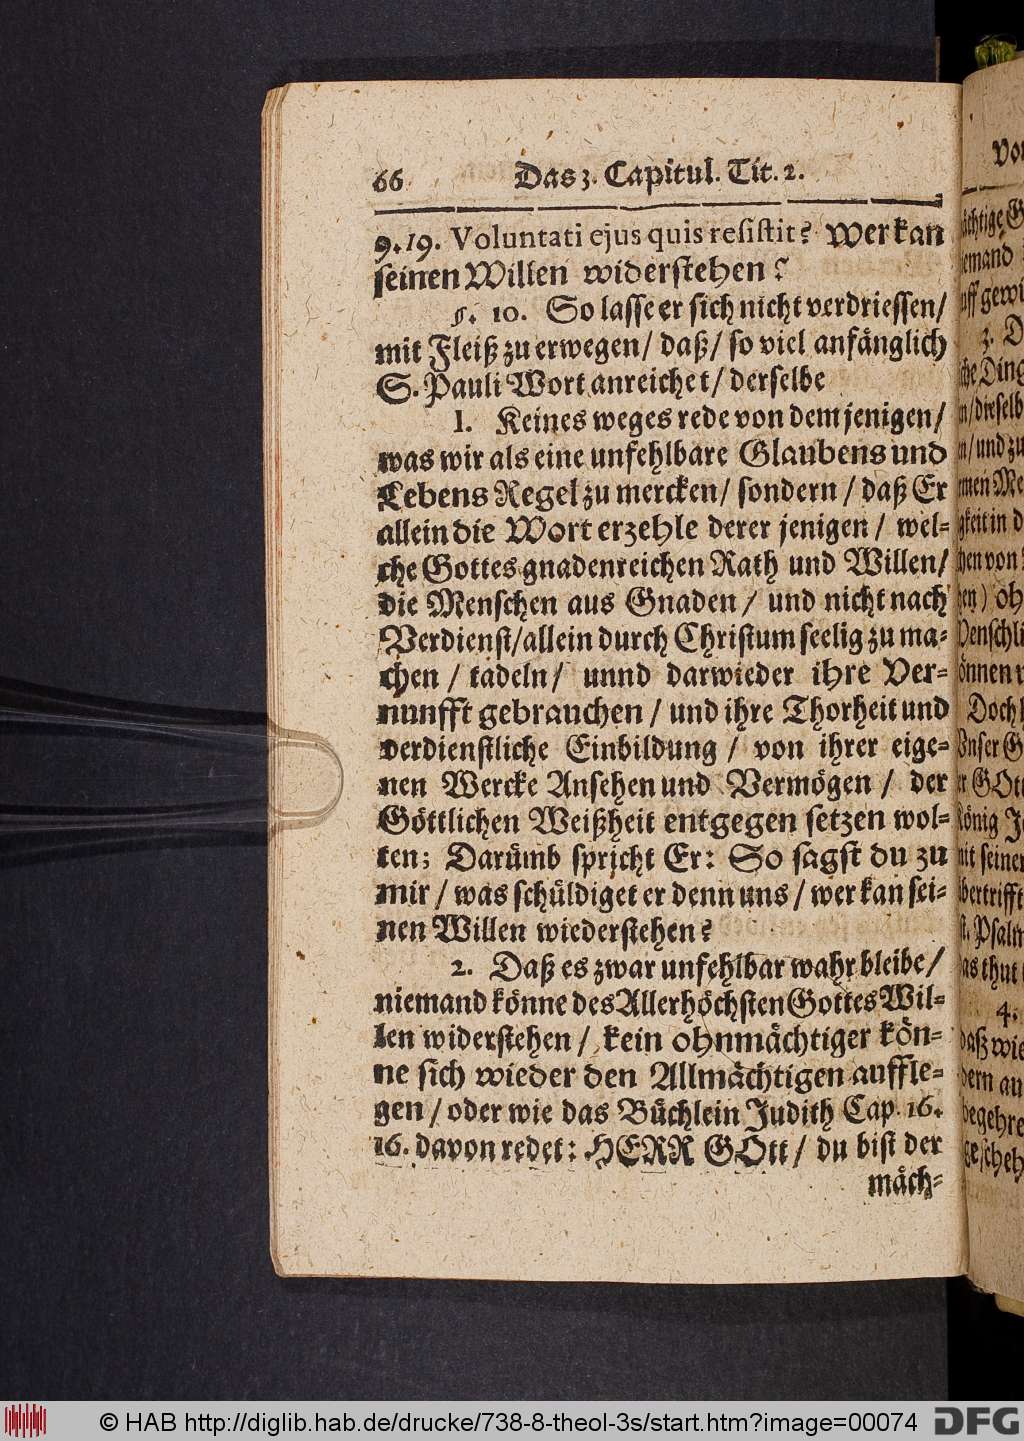 66 Das 3. Capitul. Tit. 2.
9. 19. Voluntati ejus quis resistit? Wer kan
seinen Willen widerstehen?
§. 10. So lasse er sich nicht verdriessen/
mit Fleiß zu erwegen/ daß/ so viel anfänglich
S. Pauli Wort anreichet/ derselbe
1. Keines weges rede von dem jenigen/
was wir als eine unfehlbare Glaubens und
Lebens Regel zu mercken/ sondern/ daß Er
allein die Wort erzehle derer jenigen/ wel-
che Gottes gnadenreichen Rath und Willen/
die Menschen aus Gnaden/ und nicht nach
Verdienst/ allein durch Christum seelig zu ma-
chen/ tadeln/ unnd darwieder ihre Ver-
nunfft gebrauchen/ und ihre Thorheit und
verdienstliche Einbildung/ von ihrer eige-
nen Wercke Ansehen und Vermögen/ der
Göttlichen Weißheit entgegen setzen wol-
ten; Darümb spricht Er: So sagst du zu
mir/ was schüldiget er denn uns/ wer kan sei-
nen Willen wiederstehen?
2. Daß es zwar unfehlbar wahr bleibe/
niemand könne des Allerhöchsten Gottes Wil-
len widerstehen/ kein ohnmächtiger kön-
ne sich wieder den Allmächtigen auffle-
gen/ oder wie das Büchlein Judith Cap. 16.
16. davon redet: HERR GOtt/ du bist der
mäch-
© HAB http://diglib.hab.de/drucke/738-8-theol-3s/start.htm?image=00074
DFG